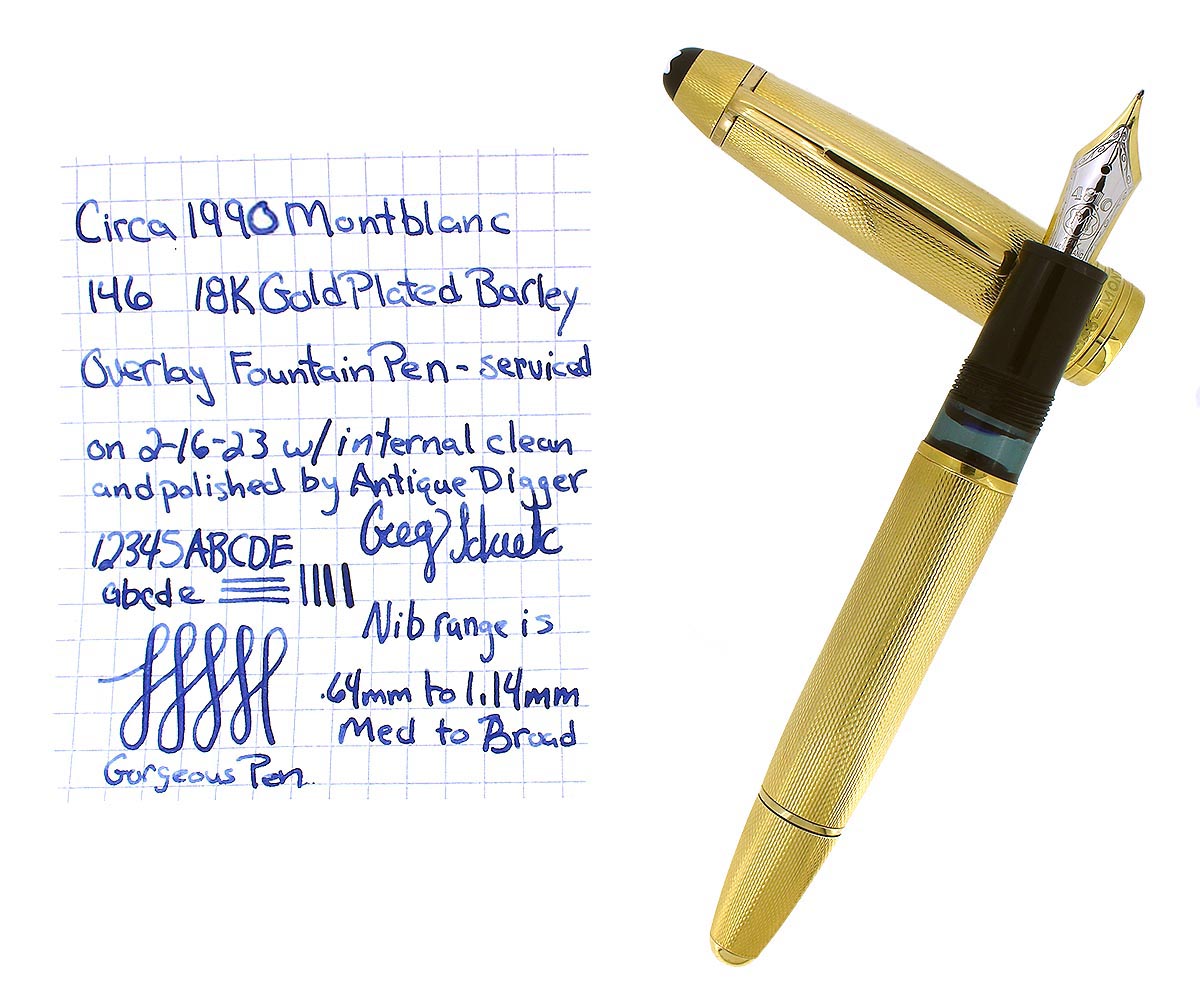 Circa 1990 Montblanc
146 18K Gold Plated Barley
Overlay Fountain Pen - serviced
on 2-16-23 w/ internal clean
and polished by Antique Digger
Greg
12345ABCDE
abcde
Nib range is
.64mm to 1.14mm
Med to Broad
Gorgeous Pen
4810